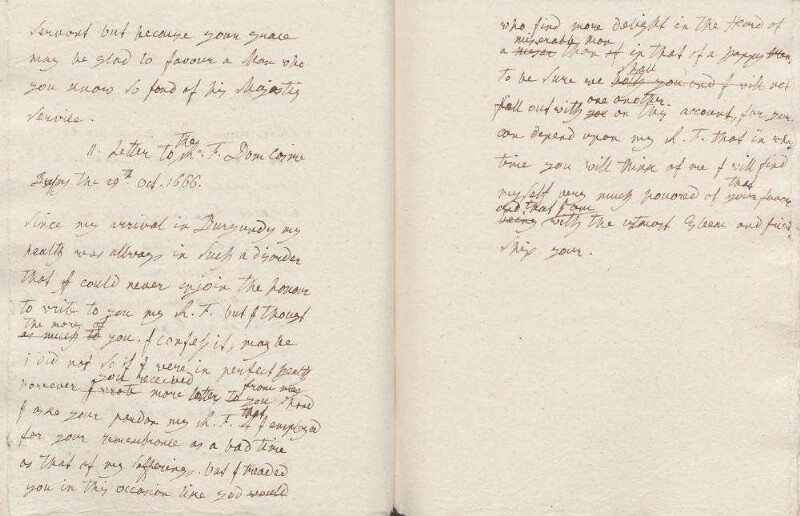 servant but because your grace
may be glad to favour a Man who
you know so fond of his Majesty
service.
11. Letter to the R. F. Dom Cosme
the 29th Oct. 1666.
Since my arrival in Burgundy my
health was allways in such a disorder
that I could never injoin the honour
to write to you my R. F. but I thought
the more of
as much to you. I confess it, may be
I did not so if I were in perfect health
you received from me
however I wrote more letter to you
I aske your pardon my R. F. that if I employed
for your remembrance as a bad time
as that of my suffering. but I treaded
you in this occasion like you would
who find more delight in the
miserable man
a miser than if in that of a happy
shall
to be sure we both you and I will not
one another
fall out with you on this account, for you
can depend upon my R. F. that in
time you will think of me I will find
that
myself very much honored of your favour
and that I am
being with the utmost Esteem and frie
ship your.